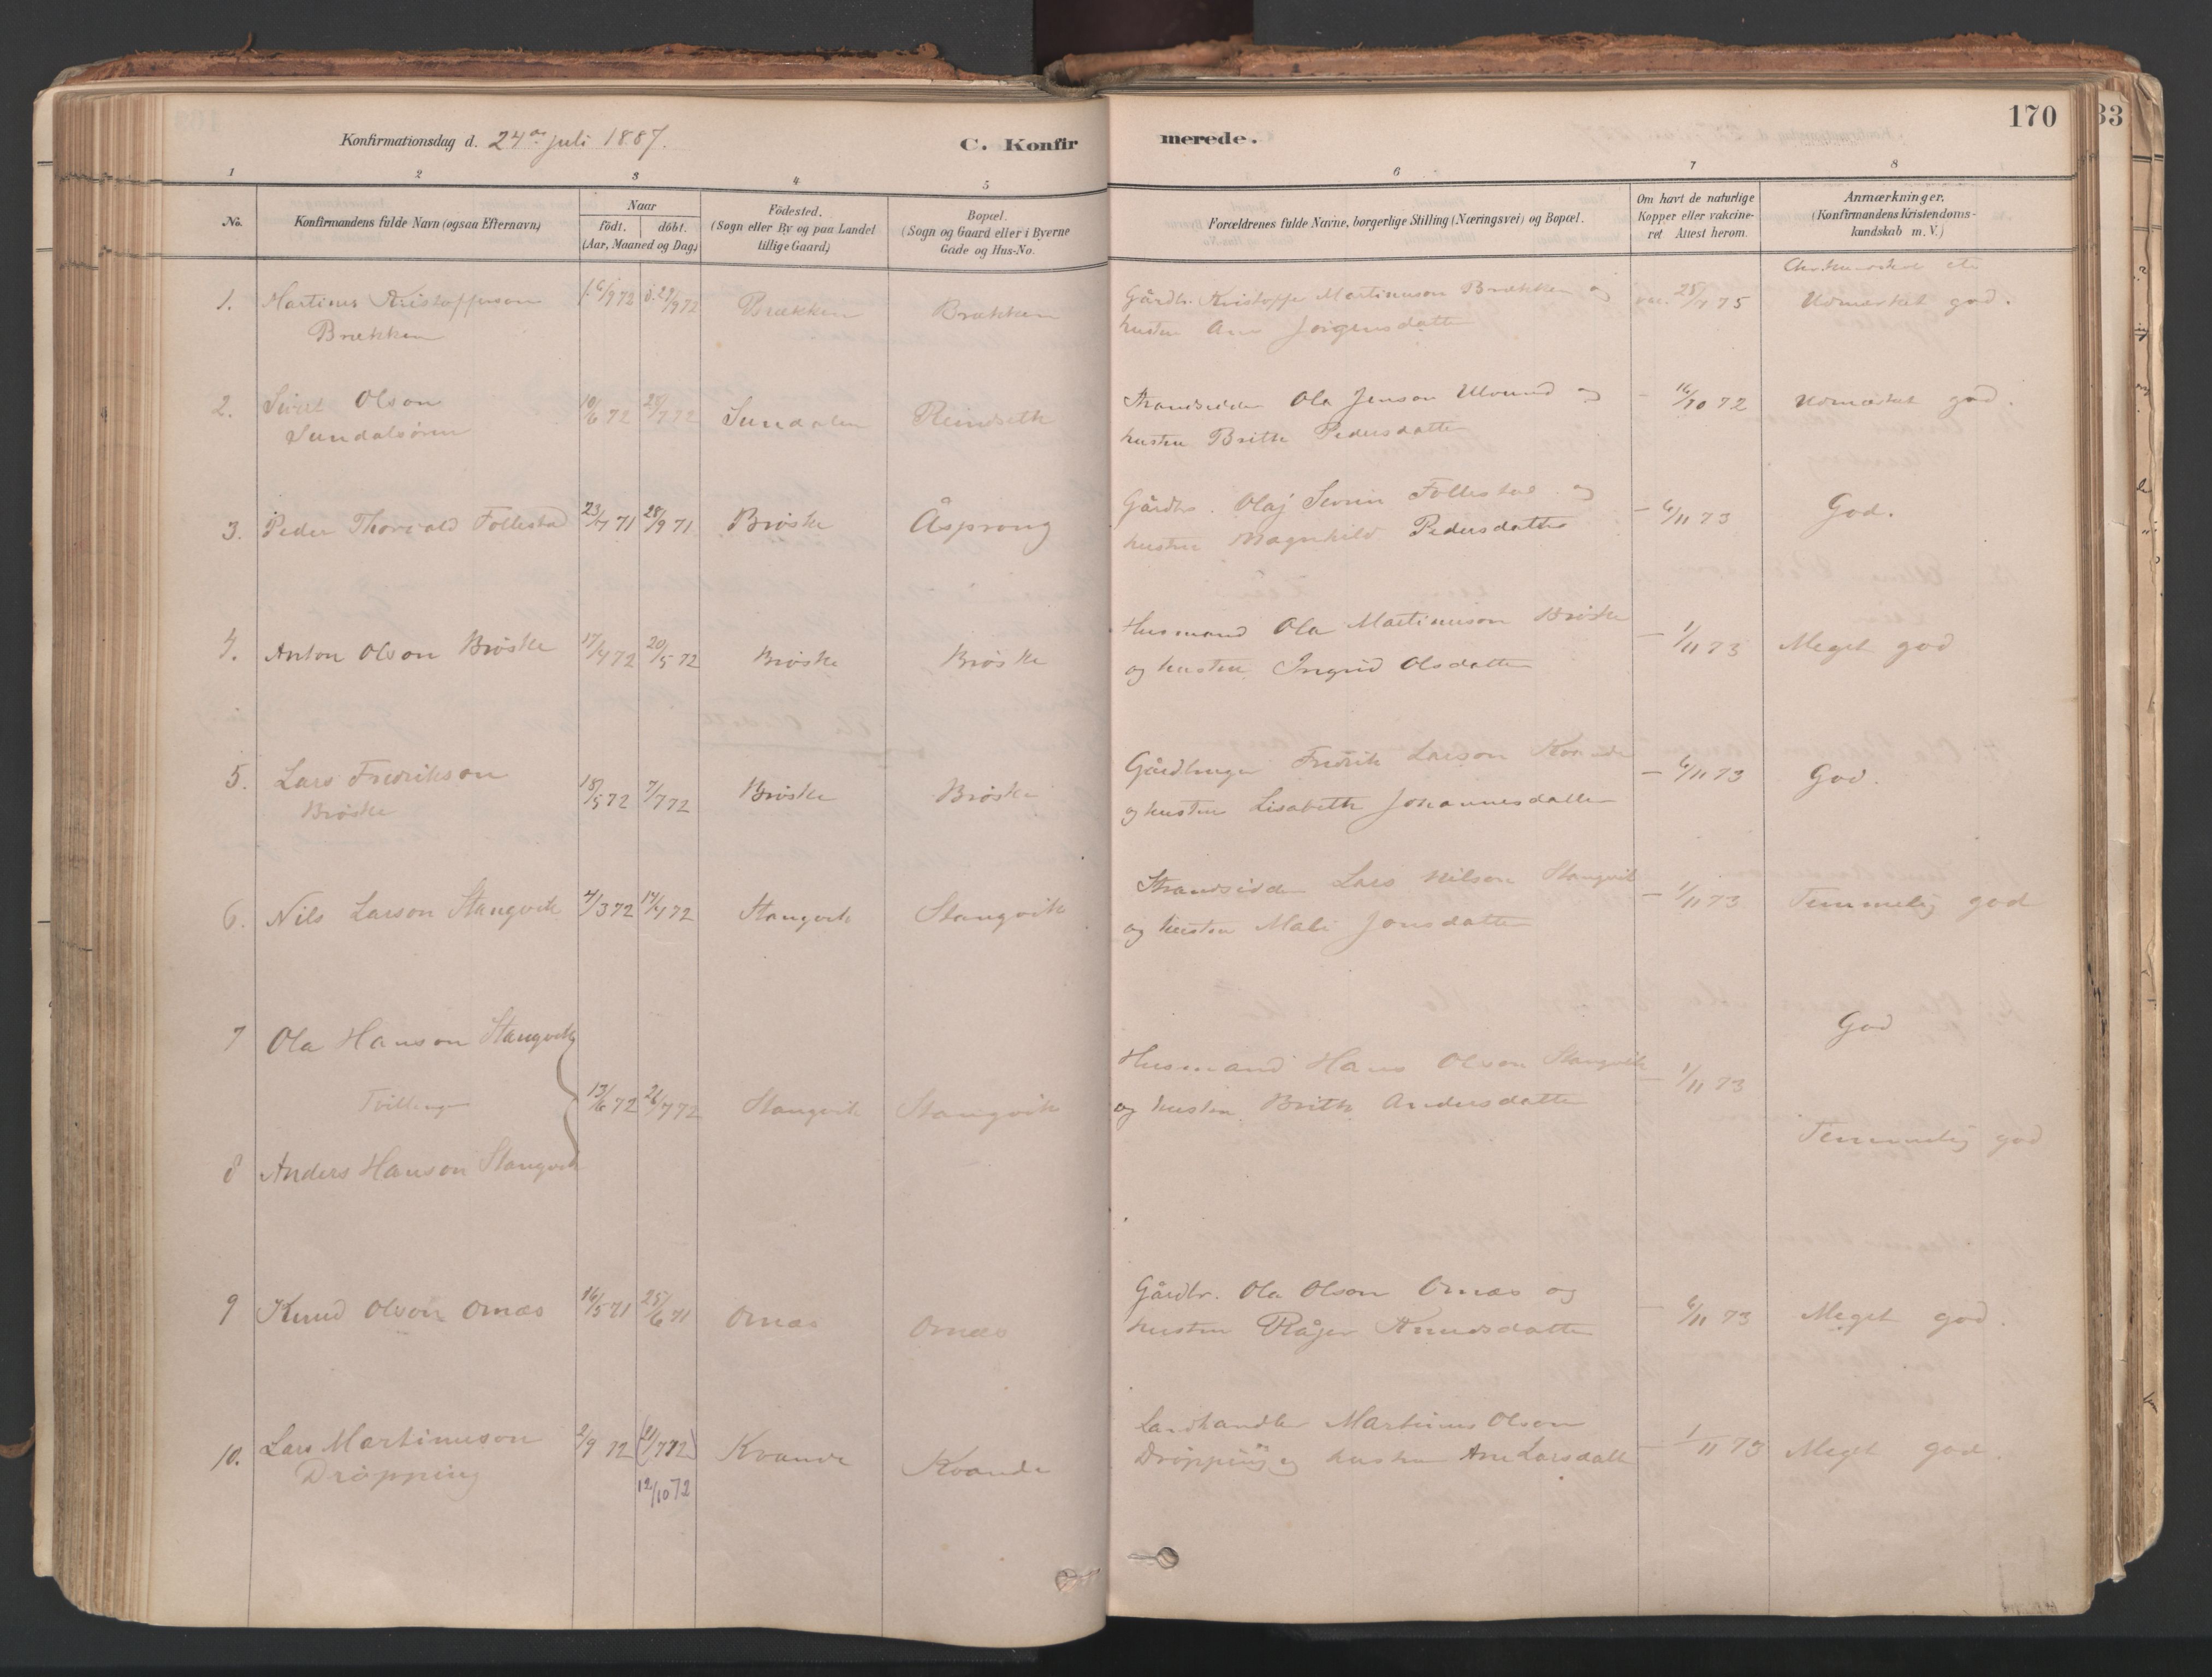 170
33
Konfirmationsdag d. 24de juli 1887.
C. Konfirmerede.
1 2 3 4 5 6 7 8
No.
Konfirmandens fulde Navn (ogsaa Efternavn)
Naar
födt. döbt.
(Aar, Maaned og Dag)
Födested.
(Sogn eller By og paa Landet
tillige Gaard)
Bopæl.
(Sogn og Gaard eller i Byerne
Gade og Hus-No.
Forældrenes fulde Navne, borgerlige Stilling (Næringsvei) og Bopæl.
Om havt de naturlige
Kopper eller vakcine-
ret Attest herom.
Anmærkninger.
(Konfirmandens Kristendoms-
kundskab m. V.)
1. Martinus Kristofferson 6/9 72 29/9 72 Brækken Brækken Gårdbr. Kristoffer Martinuson Brækken og vac. 28/7 75 Udmærket god.
Brækken husten Ane Jörgensdatter
2. Sivert Olson 10/6 72 28/7 72 Sundalen Reinseth Strandsidder Ola Jenson Ulvund og - 16/10 72 Udmærket god.
Sundalsören husten Brithe Pedersdatter
3. Peder Thorvald Follestad 23/7 71 28/9 71 Bröske Åsprong Gårdbr. Olaj Follestad og - 6/11 73 God.
husten Magnhild Pedersdatter
4. Anton Olson Bröske 17/4 72 20/5 72 Bröske Bröske Husmand Ola Martinuson Bröske - 1/11 73 Meget god
og husten Ingrid Olsdatter
5. Lars Fredrikson 18/5 72 7/7 72 Bröske Bröske Gårdbruger Fredrik Larson - 6/11 73 God.
Bröske og husten Lisabeth Johannesdatter
6. Nils Larson Stangvik 4/3 72 14/4 72 Stangvik Stangvik Strandsidder Lars Nilson Stangvik - 1/11 73 Temmelig god
og husten Mali Jonsdatter
7 Ola Hanson Stangvik God
Tvillinger 13/6 72 21/7 72 Stangvik Stangvik Husmand Hans Olson Stangvik - 1/11 73
og husten Brith Andersdatter
8 Anders Hanson Stangvik Temmelig god
9 Knud Olson Ornæs 16/5 71 25/6 71 Ornæs Ornæs Gårdbr. Ola Olson Ornæs og - 6/11 73 Meget god.
husten Knudsdatter
10. Lars Martinuson 2/9 72 (21/7 72) Kvande Kvande Landhandler Martinus Olson - 1/11 73 Meget god.
Dröpping 12/10 72 Dröpping og husten Ane Larsdatt